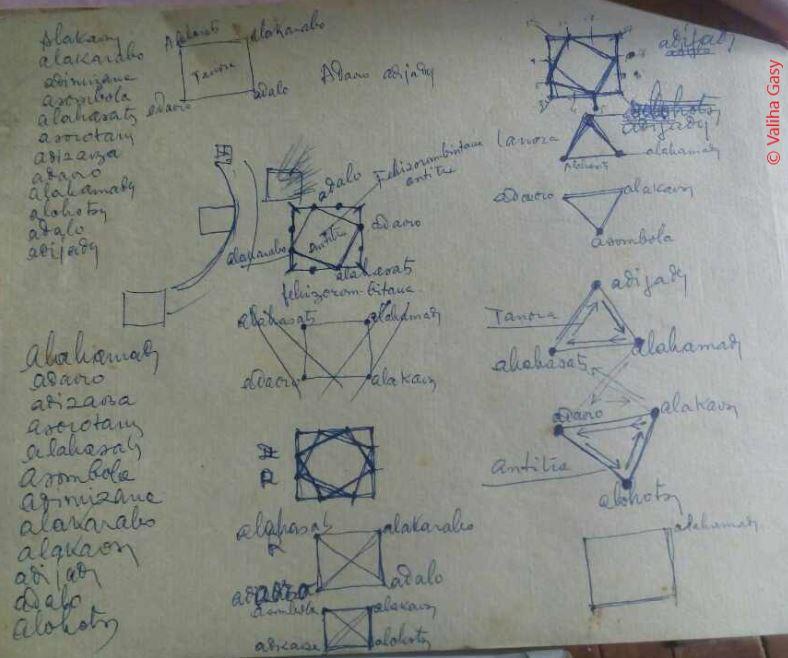 Alakaosy
alakarabo
adimizana
asombola
alahasaty
asorotany
adizaoza
adaoro
alahamady
alohotsy
adalo
adijady
Alahasaty
alakarabo
Tanora
adaoro
adalo
Adaoro adijady
adalo
Fehizorombintana
antitra
adaoro
antitra
alakarabo
alahasaty
fehizorom-bitana
alahasaty
alahamady
adaoro
alakaosy
alahasaty
alakarabo
adalo
asombola
alakaosy
alohotsy
adijady
alohotsy
adijady
Tanora
alahamady
adaoro
alakaosy
asombola
adijady
Tanora
alahasaty
alahamady
adaoro
alakaosy
antitra
alohotsy
alahamady
alahamady
adaoro
adizaoza
asorotany
alahasaty
asombola
adimizana
alakarabo
alakaosy
adijady
adalo
alohotsy
© Valiha Gasy